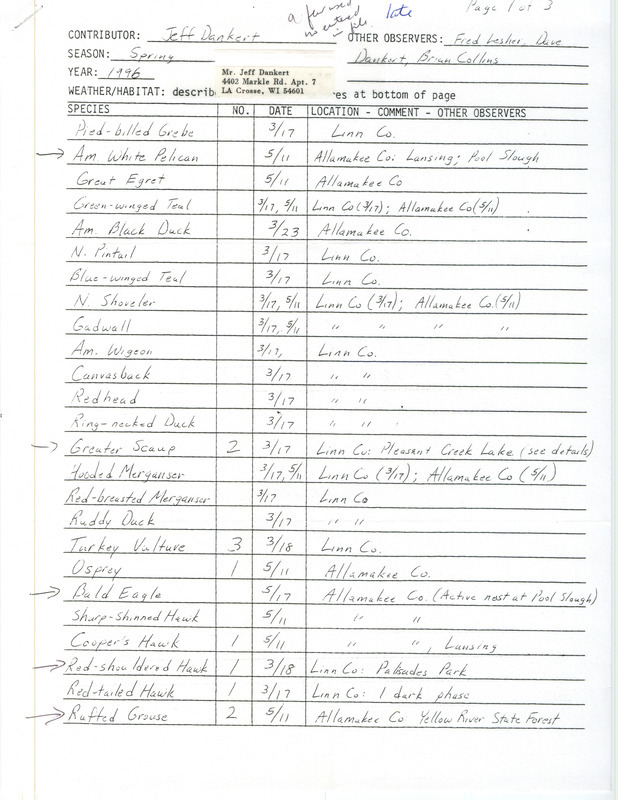 a few not entered in file late Page 1 of 3
CONTRIBUTOR: Jeff Dankert OTHER OBSERVERS: Fred Lesher, Dave
SEASON: Spring Dankert, Brian Collins
YEAR: 1996
Mr. Jeff Dankert
4402 Markle Rd. Apt. 7
LA Crosse, WI 54601
WEATHER/HABITAT: describ es at bottom of page
SPECIES NO. DATE LOCATION - COMMENT - OTHER OBSERVERS
Pied-billed Grebe 3/17 Linn Co.
→ Am White Pelican 5/11 Allamakee Co: Lansing; Pool Slough
Great Egret 5/11 Allamakee Co
Green-winged Teal 3/17, 5/11 Linn Co (3/17); Allamakee Co (5/11)
Am. Black Duck 3/23 Allamakee Co.
N. Pintail 3/17 Linn Co.
Blue-winged Teal 3/17 Linn Co.
N. Shoveler 3/17, 5/11 Linn Co (3/17); Allamakee Co. (5/11)
Gadwall 3/17, 5/11 " " " "
Am. Wigeon 3/17, Linn Co.
Canvasback 3/17 " "
Redhead 3/17 " "
Ring-necked Duck 3/17 " "
→ Greater Scaup 2 3/17 Linn Co: Pleasant Creek Lake (see details)
Hooded Merganser 3/17, 5/11 Linn Co (3/17); Allamakee Co (5/11)
Red-breasted Merganser 3/17 Linn Co
Ruddy Duck 3/17 " "
Turkey Vulture 3 3/18 Linn Co.
Osprey 1 5/11 Allamakee Co.
→ Bald Eagle 5/17 Allamakee Co. (Active nest at Pool Slough)
Sharp-shinned Hawk 5/11 " "
Cooper's Hawk 1 5/11 " ", Lansing
→ Red-shouldered Hawk 1 3/18 Linn Co: Palisades Park
Red-tailed Hawk 1 3/17 Linn Co: 1 dark phase
→ Ruffed Grouse 2 5/11 Allamakee Co Yellow River State Forest